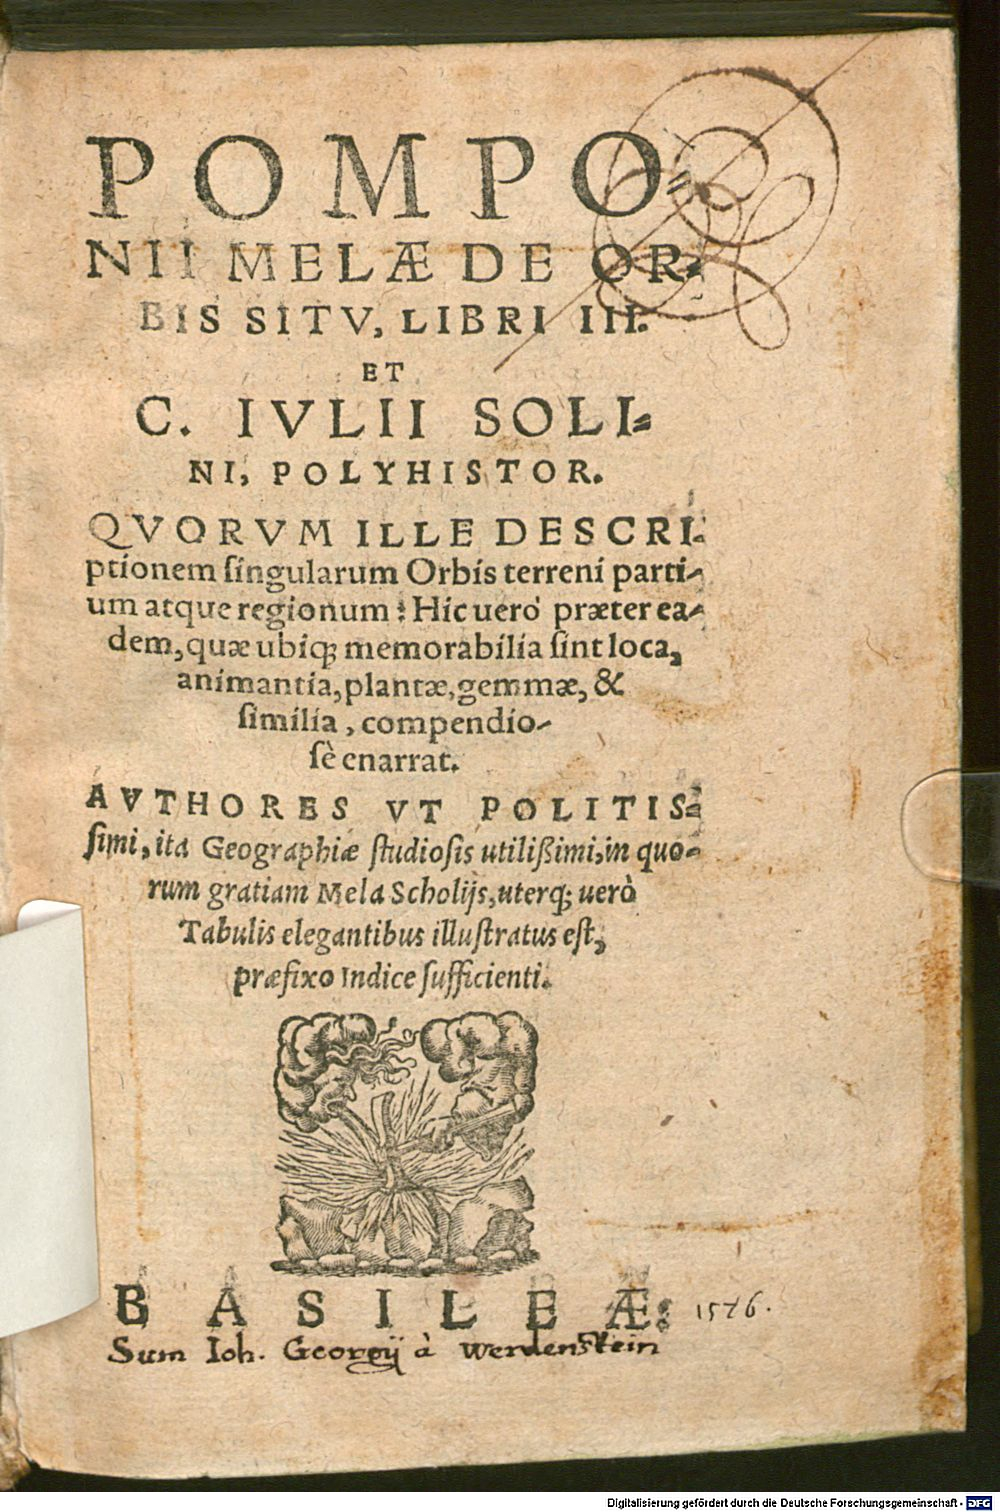 POMPO=
NII MELÆ DE OR-
BIS SITV, LIBRI III.
ET
C. IVLII SOLI=
NI, POLYHISTOR.
QVORVM ILLE DESCRI-
ptionem singularum Orbis terreni parti-
um atque regionum: Hic uerò præter ea-
dem, quæ ubiq; memorabilia sint loca,
animantia, plantæ, gemmæ, &
similia, compendio-
sè enarrat.
AVTHORES VT POLITIS=
simi, ita Geographiæ studiosis utilißimi, in quo-
rum gratiam Mela Scholijs, uterq; uerò
Tabulis elegantibus illustratus est,
præfixo Indice sufficienti.
BASILEÆ: 1576.
Sum Ioh. Georgij à Werdenstein
Digitalisierung gefördert durch die Deutsche Forschungsgemeinschaft - DFG